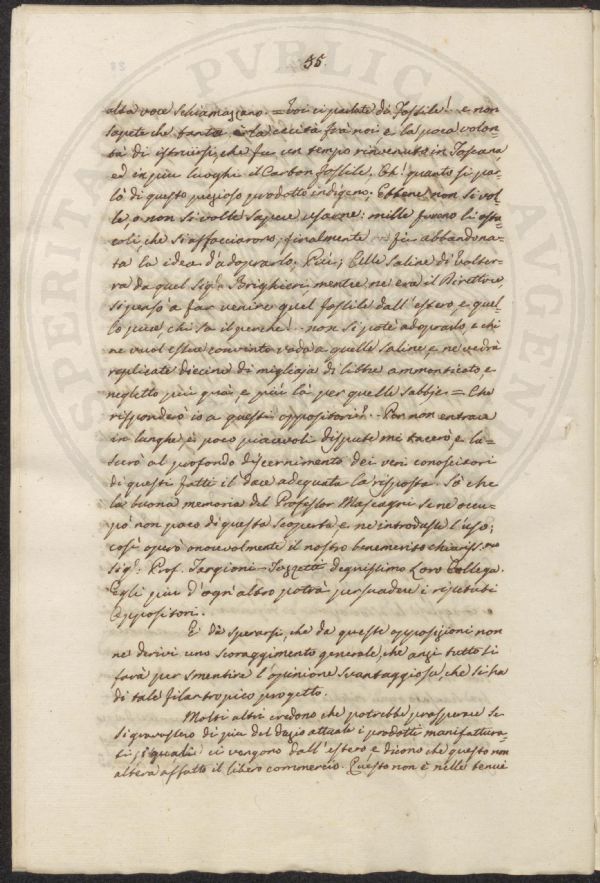 35.
alta voce schiamazzano. = Voi ci parlate di Fossile! e non
sapete che tanta è la cecità frà noi e la poca volon=
tà di istruirsi, che fu un tempo rinvenuto in Toscana,
ed in più luoghi il Carbon fossile. Oh! quanto si par=
lò di questo prezioso prodotto indigeno; Ebbene non si vol=
le, o non si volle sapere usarne: mille furono li osta=
coli, che si affacciarono, finalmente fù abbandona=
ta la idea d'adoprarlo; Più; Alle Saline di Volter=
ra da quel Sig.r Brighieri mentre ne era il Direttore
si pensò a far venire quel fossile dall'estero, e quel=
lo pure chi sa il perchè! non si potè adoprarlo, e chi
ne vuol essere convinto vada a quelle saline, e ne vedrà
replicate diecine di migliaja di libbre ammonticato e
negletto più quà, e più là per quelle sabbie. = Che
risponderò io a questi oppositori? Per non entrare
in lunghe, e poco piacevoli dispute mi tacerò, e la=
scerò al profondo discernimento dei veri conoscitori
di questi fatti il dare adeguata la risposta. Sò che
la buona memoria del Professor Mascagni se ne occu=
pò non poco di questa scoperta e ne introdusse l'uso;
così operò onorevolmente il nostro benemerito chiariss.mo
Sig.r Prof. Targioni-Tozzetti degnissimo Loro Collega.
Egli più d'ogn'altro potrà persuadere i ripetuti
Oppositori.
E' da sperarsi, che da queste opposizioni non
ne derivi uno scoraggimento generale, che anzi tutto si
farà per smentire l'opinione svantaggiosa, che si ha
di tale filantropico progetto.
Molti altri credono che potrebbe prosperare se
si gravassero di più del dazio attuale i prodotti manifattura=
ti, i quali ci vengono dall'estero e dicono che questo non
altera affatto il libero commercio. Questo non è nelle tenui
PVBLICAE
AVGENDAE